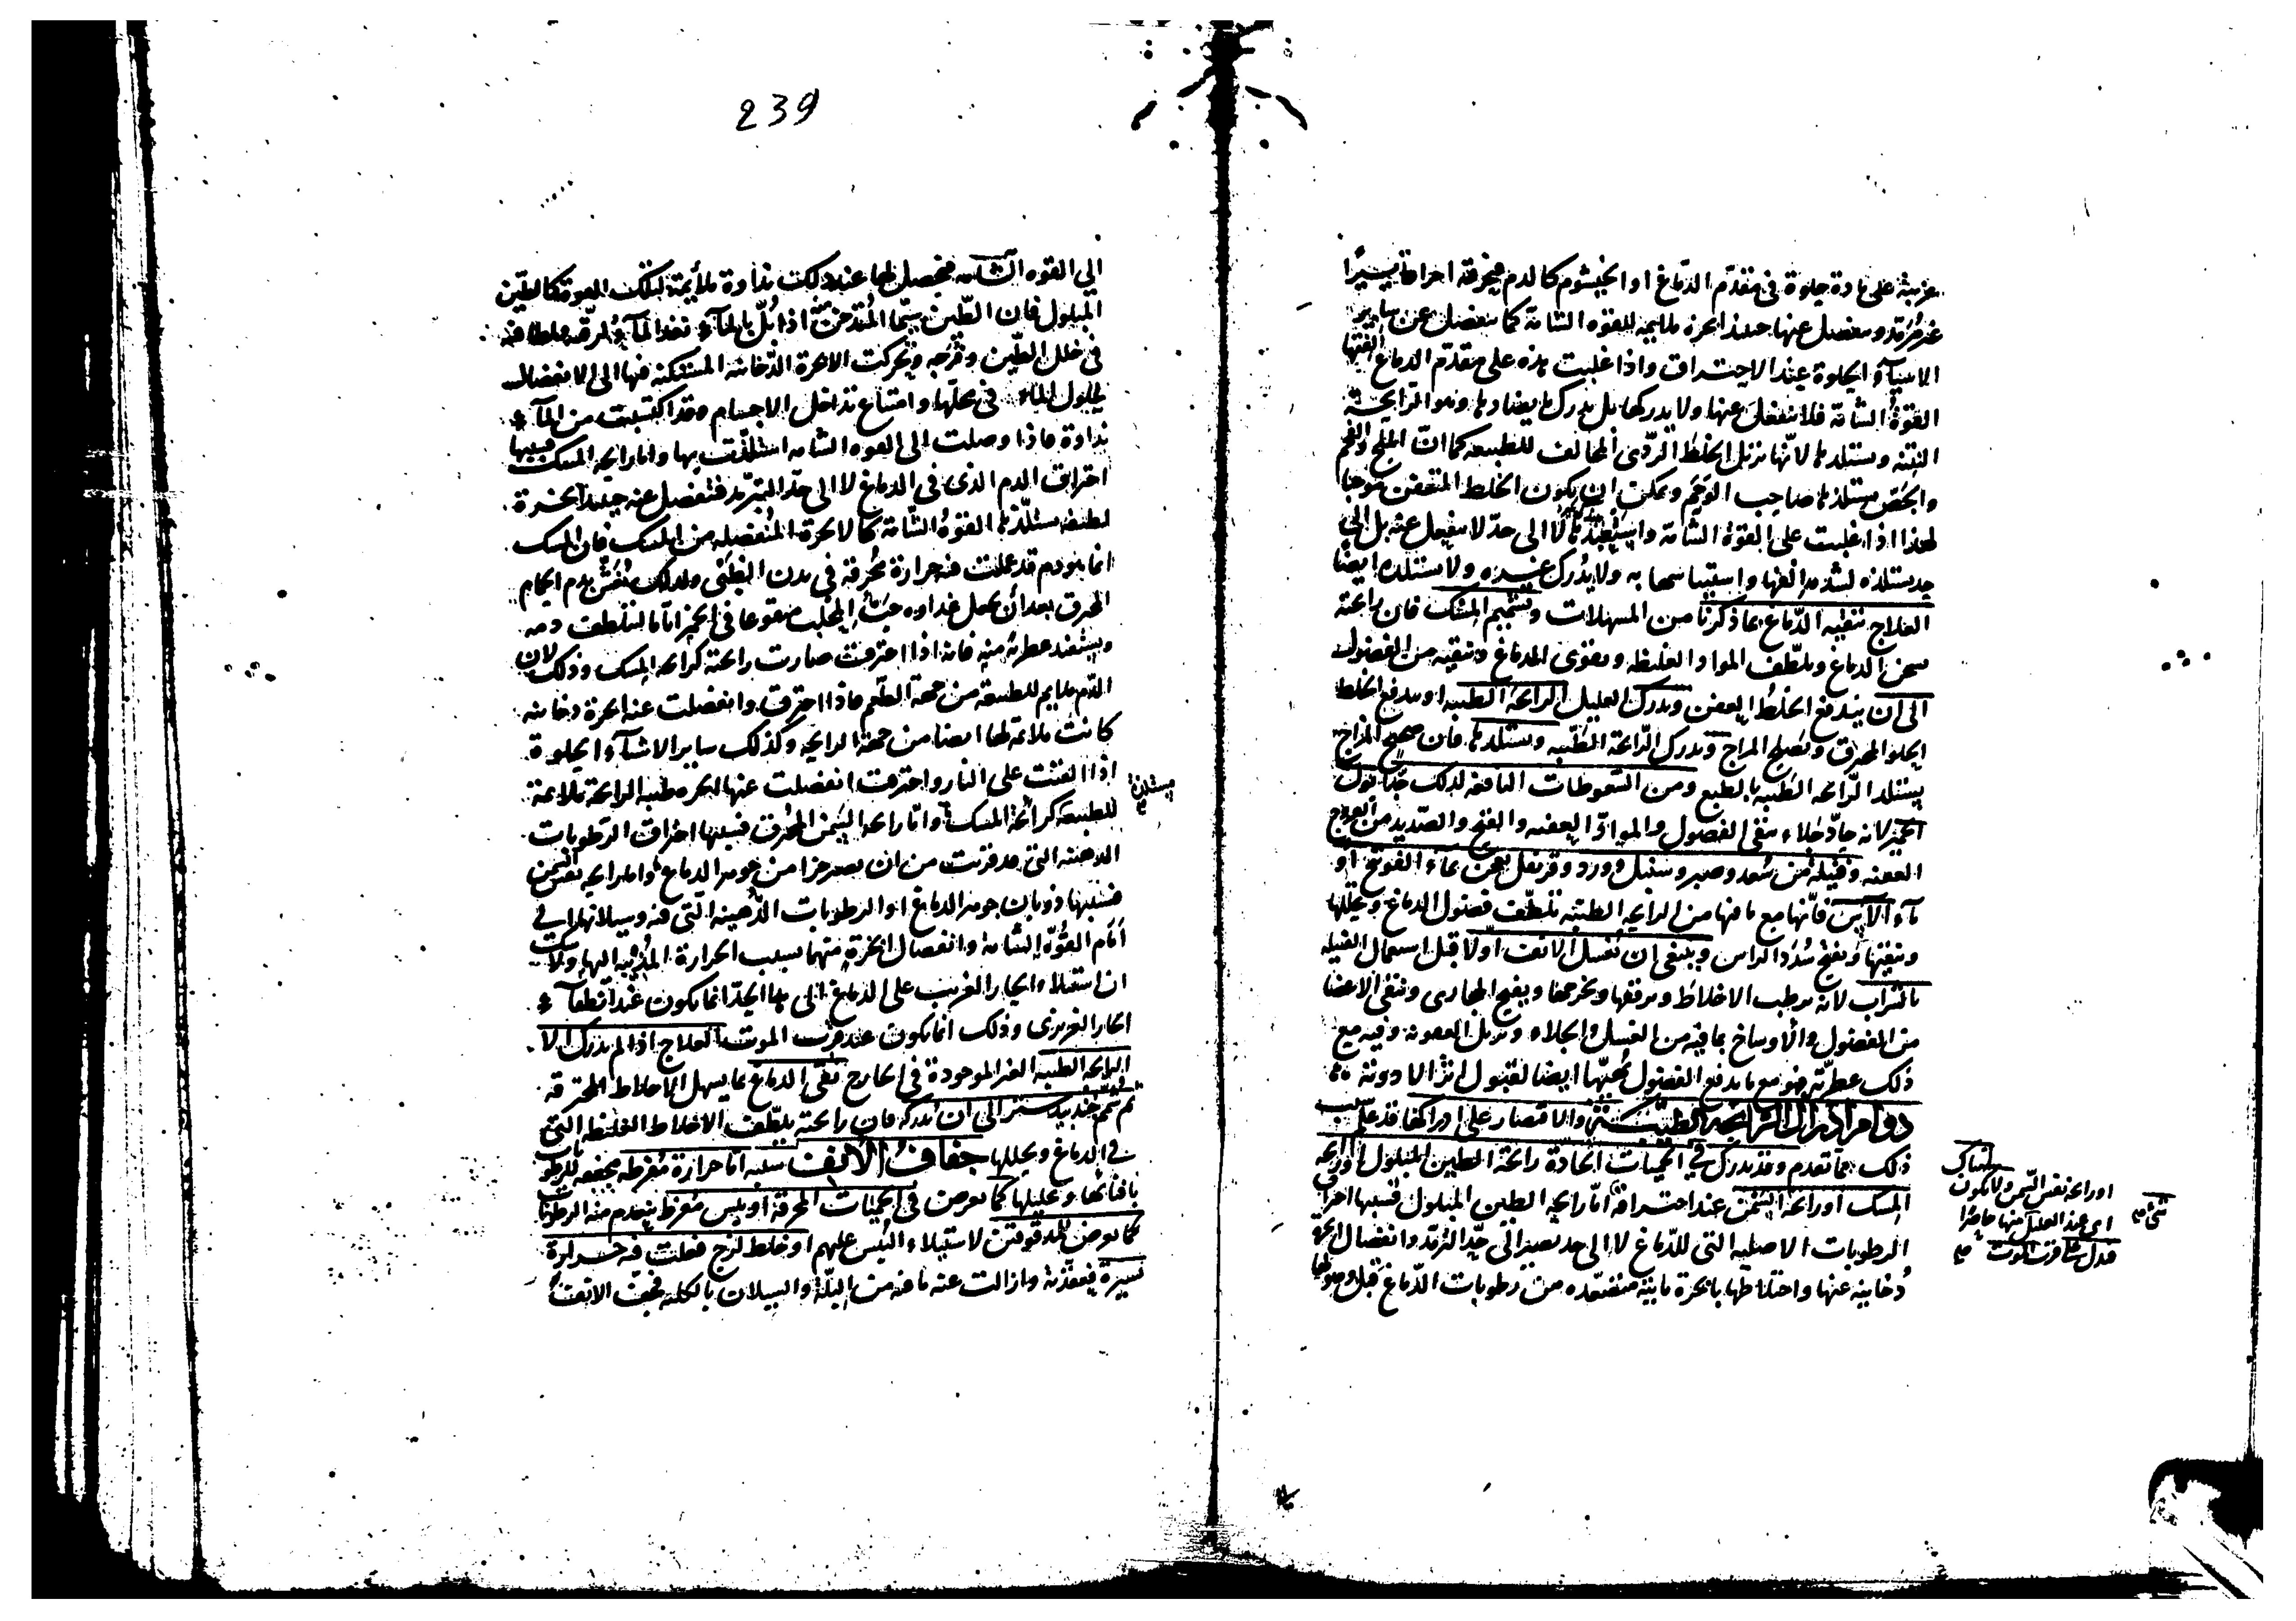 غريبة على مادة حلوة في مقدّم الدماغ او الخيشوم كالدم فيحرقه احراقا يسيرًا
غير مُرَمّد وينفصل عنها حينئذ ابخرة ملايمة للقوة الشامة كما ينفصل عن ساير
الاشياء الحلوة عند الاحتراق واذا غلبت هذه على مقدّم الدماغ الفتها
القوة الشامة فلا تنفعل عنها ولا يدركها بل يدرك ما يضادها وهو الرايحة
النتنة ويستلذها لانّها تزيل الخلط الردّى المخالف للطبيعة كما انّ الملح والفحم
والجص يستلذها صاحب الوحم ويمكن ان يكون الخلط المتعفن موجبا
لهذا اذا غلبت على القوة الشامة لا الى حدّ لا ينفعل عنه بل الى
حد يستلذه لشدة الفها واستيناسها به ولا يُدرك غيره ولا يستلذه ايضا
العلاج تنقية الدّماغ بما ذكرنا من المسهلات وتشميم المسك فان رائحة
يسخن الدماغ ويلطّف المواد الغليظة ويقوى الدماغ وتنقيه من الفضول
الى ان يندفع الخلط العفن ويدرك العليل الرايحة الطيبة او يندفع الخلط
الحلو المحرق ويصلح المزاج ويدرك الرّائحة الطّيّبة ويستلذها فان صحيح المزاج
يستلذ الرّائحة الطيبة بالطبع ومن السّعوطات النافعة لذلك جدا بول
الحمير لانه حادّ جلاء ينقى الفضول والموادّ العفنة والقيح والصّديد من القروح
العفنة وفتيلة من سُعد وصبر وسنبل وورد وقرنفل يعجن بماء الفوتنج او
ماء الآس فانّها مع ما فيها من الرايحة الطيّبة تلطّف فضول الدماغ ويحللها
وينقيها وتفتح سُدَد الراس وينبغى ان يغسل الانف اولا قبل استعمال الفتيلة
بالشراب لانه يرطب الاخلاط ويرققها ويخرجها ويفتح المجارى وينقى الاعضا
من الفضول والاوساخ بما فيه من الغسل والجلاء ويزيل العفونة وفيه مع
ذلك عطريّة فهو مع ما يدفع الفضول يُهيّئها ايضا لقبول اثر الادوية
دوام ادراك الرائحة الطيبة والاقتصار على ادراكها قد علم سبب
ذلك مما تقدم وقد يدرك في الحميات الحادة رائحة الطين المبلول او رائحة
المسك او رائحة السّمن عند احتراقه امّا رايحة الطين المبلول فسببها احراق
الرطوبات الاصلية التى للدّماغ لا الى حد يصير الى حدّ الترمّد وانفصال ابخرة
دُخانية عنها واختلاطها بابخرة مائية متصعّدة من رطوبات الدّماغ قبل وصولها
او رائحة نفس السّمن ولا يكون
اى عند العليل منها حاضرا
فدل على قرب الموت
239
الى القوة الشامة فيحصل لها عند ذلك نداوة ملايمة لتلك القوة كالطّين
المبلول فان الطّين سيّما المُتدخن منه اذا بُلّ بالماء نفذ الماء لرقّته ولطافته
في خلل الطّين وفُرَجه وتحركت الابخرة الدّخانية المستكنة فيها الى الانفصال
لحلول الماء في محلّها وامتناع تداخل الاجسام وقد اكتسبت من الماء
نداوة فاذا وصلت الى القوة الشامة استلذّت بها وامّا رايحة المسك فسببها
احتراق الدم الذى في الدماغ لا الى حدّ الترمّد فتنفصل عنه حينئذ ابخرة
لطيفة يستلذها القوة الشّامة كالابخرة المنفصلة من المسك فان المسك
انما هو دم قد عملت فيه حرارة مُحرقة في بدن الظبى ولذلك يُغشّ بدم الحمام
المحرق بعد ان يجعل غذاوه حبّ المحلب منقوعا في الخمر ايّاما ليتلطف دمه
ويستفيد عطرية منه فانه اذا احترقت صارت رائحته كرائحة المسك وذلك لان
الدّم ملايم للطبيعة من جهة الطعم فاذا احترق وانفصلت عنه ابخرة دخانية
كانت ملائمة لها ايضا من جهة الرايحة وكذلك ساير الاشياء الحلوة
اذا القيت على النار واحترقت انفصلت عنها ابخرة طيبة الرائحة ملائمة
للطبيعة كرائحة المسك وامّا رائحة السّمن المحرق فسببها احراق الرّطوبات
الدهنية التى قد قربت من ان يصير جزا من جوهر الدماغ وامّا رايحة نفس السّمن
فسببها ذوبان جوهر الدماغ او الرطوبات الدّهنية التى فيه وسيلانها الى
امام القوّة الشامة وانفصال ابخرة منهما بسبب الحرارة المُذيبة اليها ولا شك
ان استيلاء الحار الغريب على الدماغ الى هذا الحدّ انما يكون عند انطفاء
الحار الغريزى وذلك انما يكون عند قرب الموت العلاج اذا لم يدرك الا
الرايحة الطيبة الغير الموجودة في الخارج نقّى الدماغ بما يسهل الاخلاط المحترقة
ثم شمّ جندبيدستر الى ان يُدركه فان رائحته يلطّف الاخلاط الغليظة التى
في الدماغ ويحللها جفاف الانف سببه امّا حرارة مُفرطة مجففة للرطوبات
بافنائها وتحليلها كما يعرض في الحميات المحرقة او يبس مُفرط ينعدم منه الرطوبات
كما يعرض للمدقوقين لاستيلاء اليُبس عليهم او خلط لزج فعلت فيه حرارة
يسيرة فيعقّدته وازالت عنه ما فيه من البلّة والسيلان بالكلية فيجفّ الانف